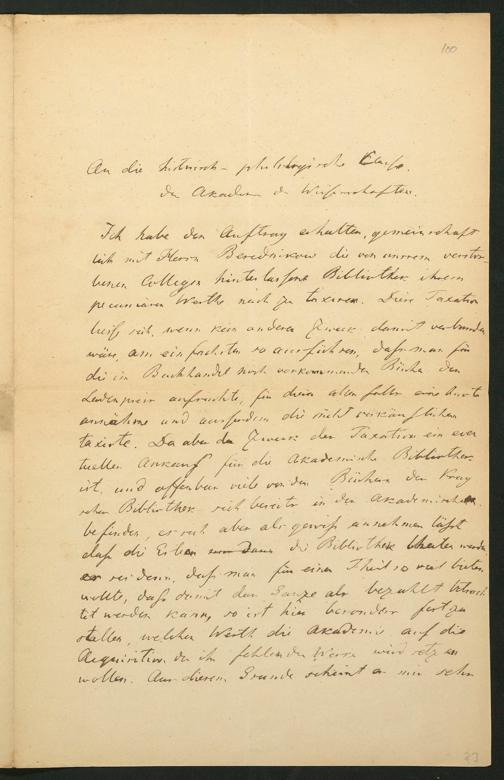 100
An die historisch-philologische Classe
der Akademie der Wissenschaften.
Ich habe den Auftrag erhalten, gemeinschaft-
lich mit Herrn Berednikow die von unserem verstor-
benen Collegen hinterlassene Bibliothek ihrem
pecuniären Werthe nach zu taxiren. Diese Taxation
ließ sich, wenn kein anderer Zweck damit verbunden
wäre, am einfachsten so ausführen, daß man für
die im Buchhandel noch vorkommenden Bücher den
Ladenpreis aufsuchte, für die
annähme und außerdem die nicht verkäuflichen
taxirte. Da aber der Zweck der Taxation ein even-
tueller Ankauf für die Akademische Bibliothek
ist, und offenbar viele von den Büchern der
schen Bibliothek sich bereits in der Akademischen
befinden, es sich aber als gewiß annehmen läßt
daß die Erben die Bibliothek theilen werden
es sei denn, daß man für einen Theil so viel bieten
wollte, daß damit das Ganze als bezahlt betrach-
tet werden kann, so ist hier besonders festzu-
stellen, welchen Werth die Akademie auf die
Acquisition der ihr fehlenden Werke wird setzen
wollen. Aus diesem Grunde scheint es mir sehr